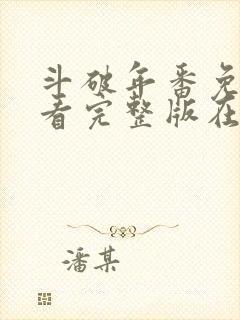 斗破年番免
看完整版在
潘某